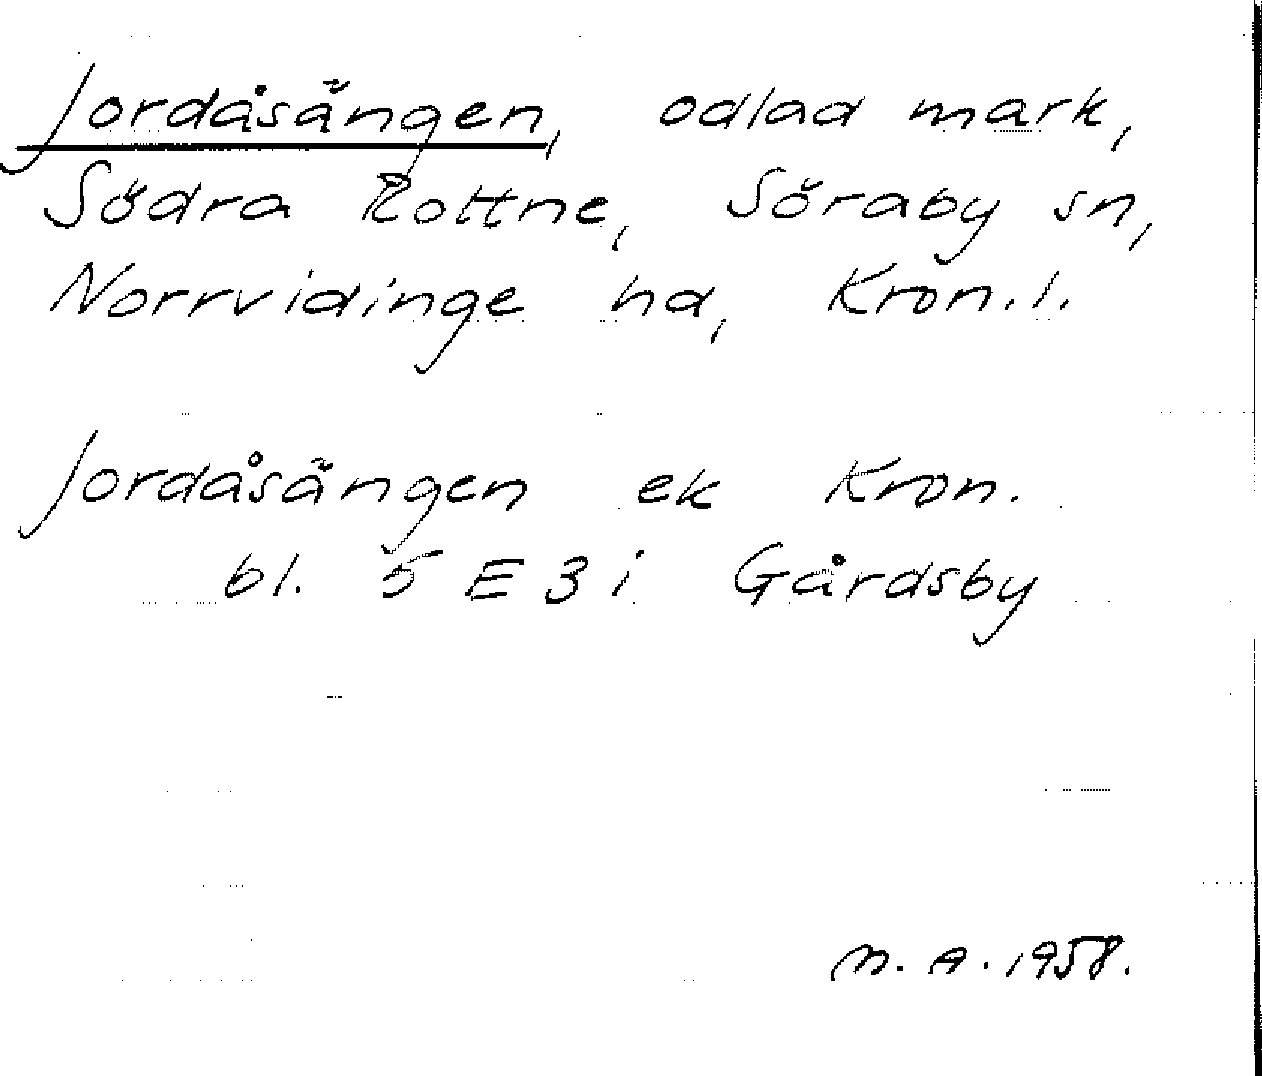 Jordåsängen, odlad mark,
Södra Rottne, Söraby sn,
Norrvidinge hd, Kron. l.
Jordåsängen ek Kron.
bl. 5 E 3 i Gårdsby
M. A. 1958.